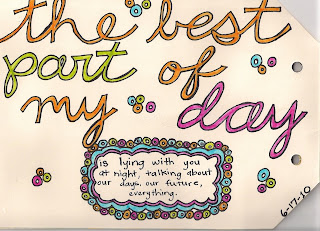 the best
part of
my day
is lying with you
at night, talking about
our days, our future,
everything.
6-17-10